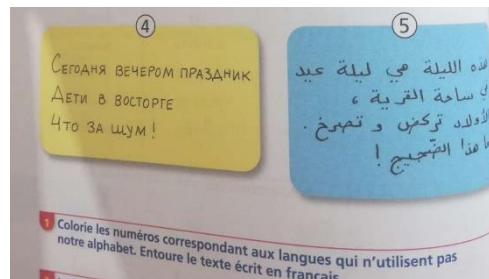 4
Сегодня вечером праздник
Дети в восторге
Что за шум !
5
هذه الليلة هي ليلة عيد
في ساحة القرية ،
الأولاد تركض و تصرخ .
ما هذا الضّجيج !
1 Colorie les numéros correspondant aux langues qui n'utilisent pas
notre alphabet. Entoure le texte écrit en français.